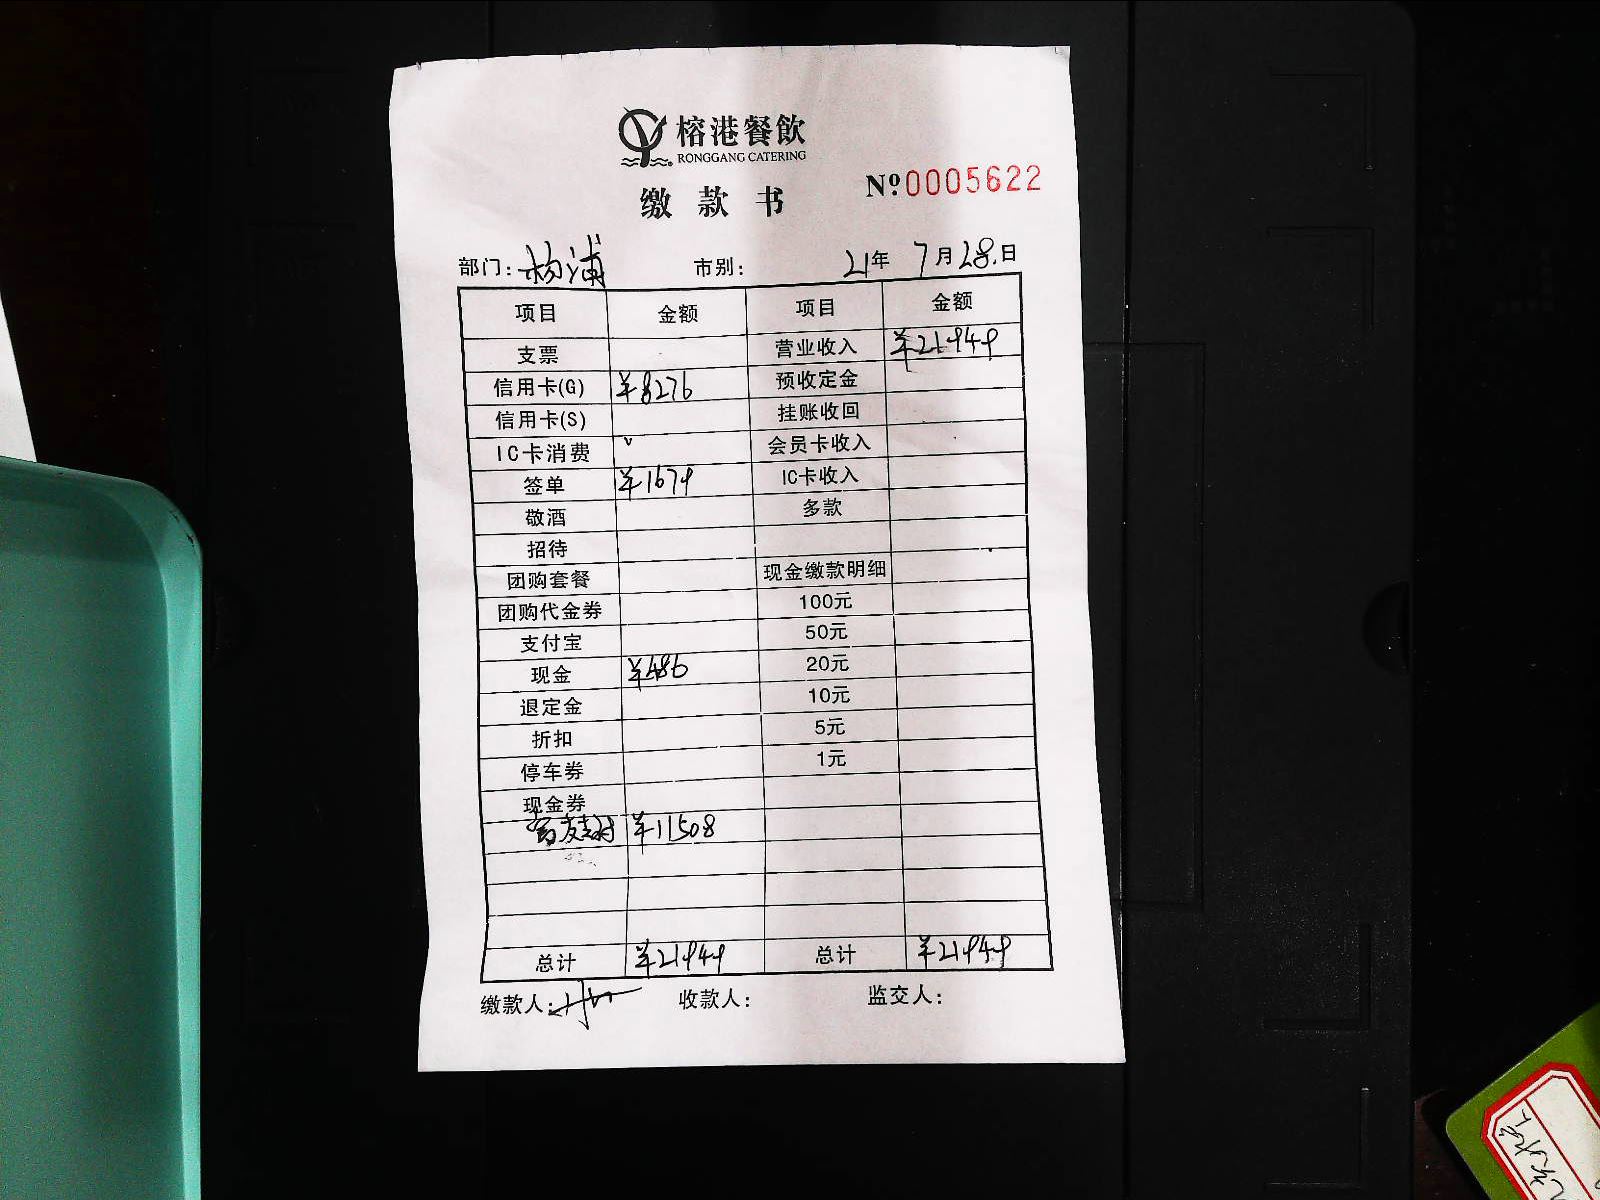 榕港餐飲
RONGGANG CATERING
缴款书
№0005622
部门：杨浦 市别： 21年 7月28日
项目 金额 项目 金额
支票 营业收入 ¥21949
信用卡(G) ¥8276 预收定金
信用卡(S) 挂账收回
IC卡消费 会员卡收入
签单 ¥1679 IC卡收入
敬酒 多款
招待
团购套餐 现金缴款明细
团购代金券 100元
支付宝 50元
现金 ¥486 20元
退定金 10元
折扣 5元
停车券 1元
现金券
¥11508
总计 ¥21949 总计 ¥21949
缴款人： 收款人： 监交人：